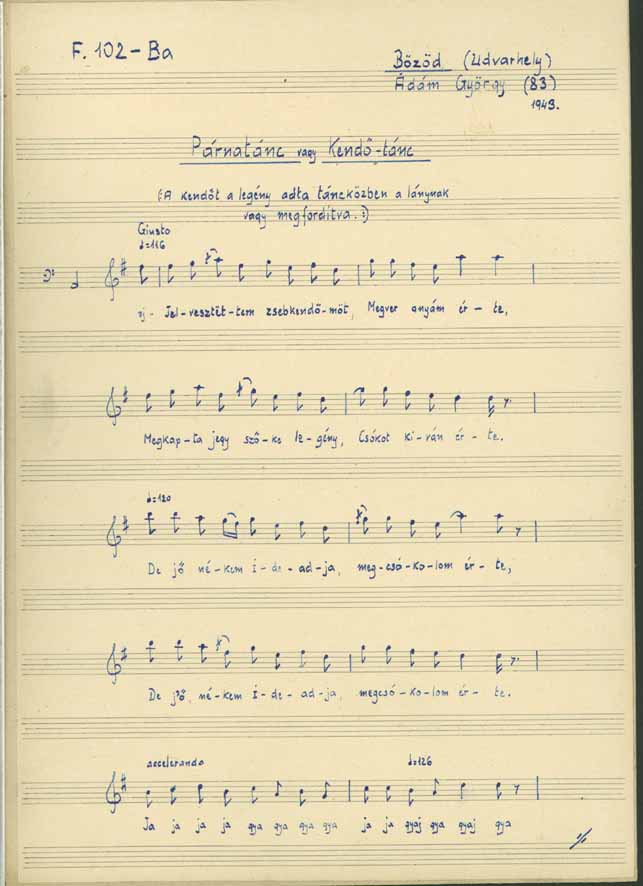 F. 102-Ba
Bözöd (Udvarhely)
Ádám György (83)
1943.
Párnatánc vagy Kendő-tánc
(:A kendőt a legény adta táncközben a lánynak
vagy megfordítva.:)
Giusto
♩=116
Jel-vesztét-tem zsebkendő-möt, Megver anyám ér-te,
Megkap-ta jegy sző-ke le-gény, Csókot ki-ván ér-te.
♩=120
De jő né-kem i-de-ad-ja, meg-csó-ko-lom ér-te,
De jő, né-kem i-de-ad-ja, megcsó-ko-lom ér-te.
accelerando ♩=126
Ja ja ja ja gya gya gya gya ja ja gyaj gya gyaj gya